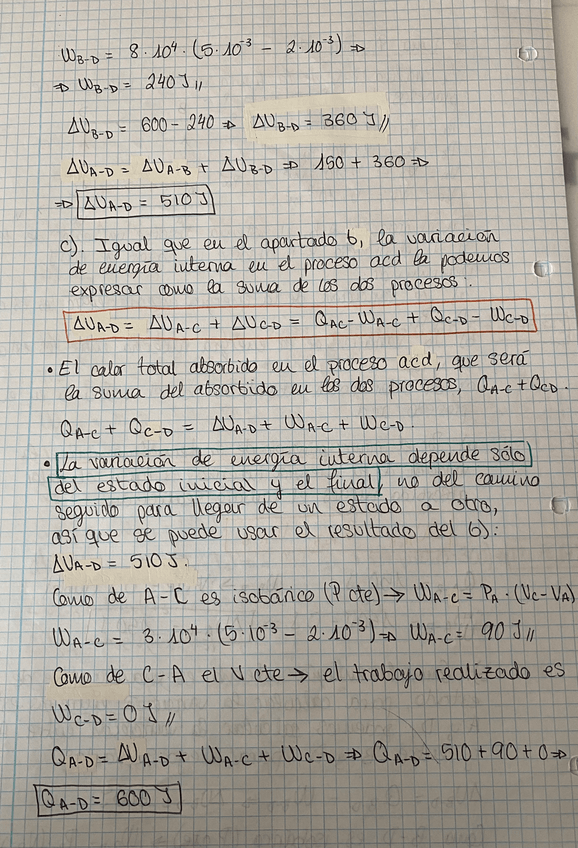 W_B-D = 8 · 10⁴ · (5 · 10⁻³ − 2 · 10⁻³) ⇒
⇒ W_B-D = 240 J //
ΔU_B-D = 600 − 240 ⇒ ΔU_B-D = 360 J //
ΔU_A-D = ΔU_A-B + ΔU_B-D ⇒ 150 + 360 ⇒
⇒ ΔU_A-D = 510 J
c). Igual que en el apartado b, la variación
de energía interna en el proceso acd la podemos
expresar como la suma de los dos procesos:
ΔU_A-D = ΔU_A-C + ΔU_C-D = Q_AC − W_A-C + Q_C-D − W_C-D
• El calor total absorbido en el proceso acd, que será
la suma del absorbido en los dos procesos, Q_A-C + Q_CD.
Q_A-C + Q_C-D = ΔU_A-D + W_A-C + W_C-D.
• La variación de energía interna depende sólo
del estado inicial y el final, no del camino
seguido para llegar de un estado a otro,
así que se puede usar el resultado del b):
ΔU_A-D = 510 J.
Como de A-C es isobárico (P cte) → W_A-C = P_A · (V_C − V_A)
W_A-C = 3 · 10⁴ · (5 · 10⁻³ − 2 · 10⁻³) ⇒ W_A-C = 90 J //
Como de C-A el V cte → el trabajo realizado es
W_C-D = 0 J //
Q_A-D = ΔU_A-D + W_A-C + W_C-D ⇒ Q_A-D = 510 + 90 + 0 ⇒
Q_A-D = 600 J